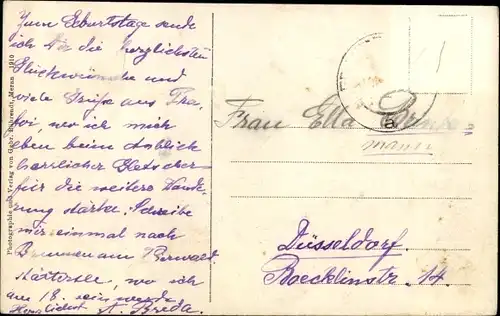 Zum Geburtstage sende
ich Dir die herzlichsten
Glückwünsche und
viele Grüße aus Tra-
foi wo ich mich
eben beim Anblick
herrlicher Gletscher
für die weitere Wande-
rung stärke. Schreibe
mir einmal nach
Brunnen am Vierwald-
stättersee, wo ich
am 18. sein werde
Herzlichst A. Breda.
Photographie und Verlag von Gebr. Bährendt, Meran 1910
Frau Ella
Düsseldorf.
Boecklinstr. 14.